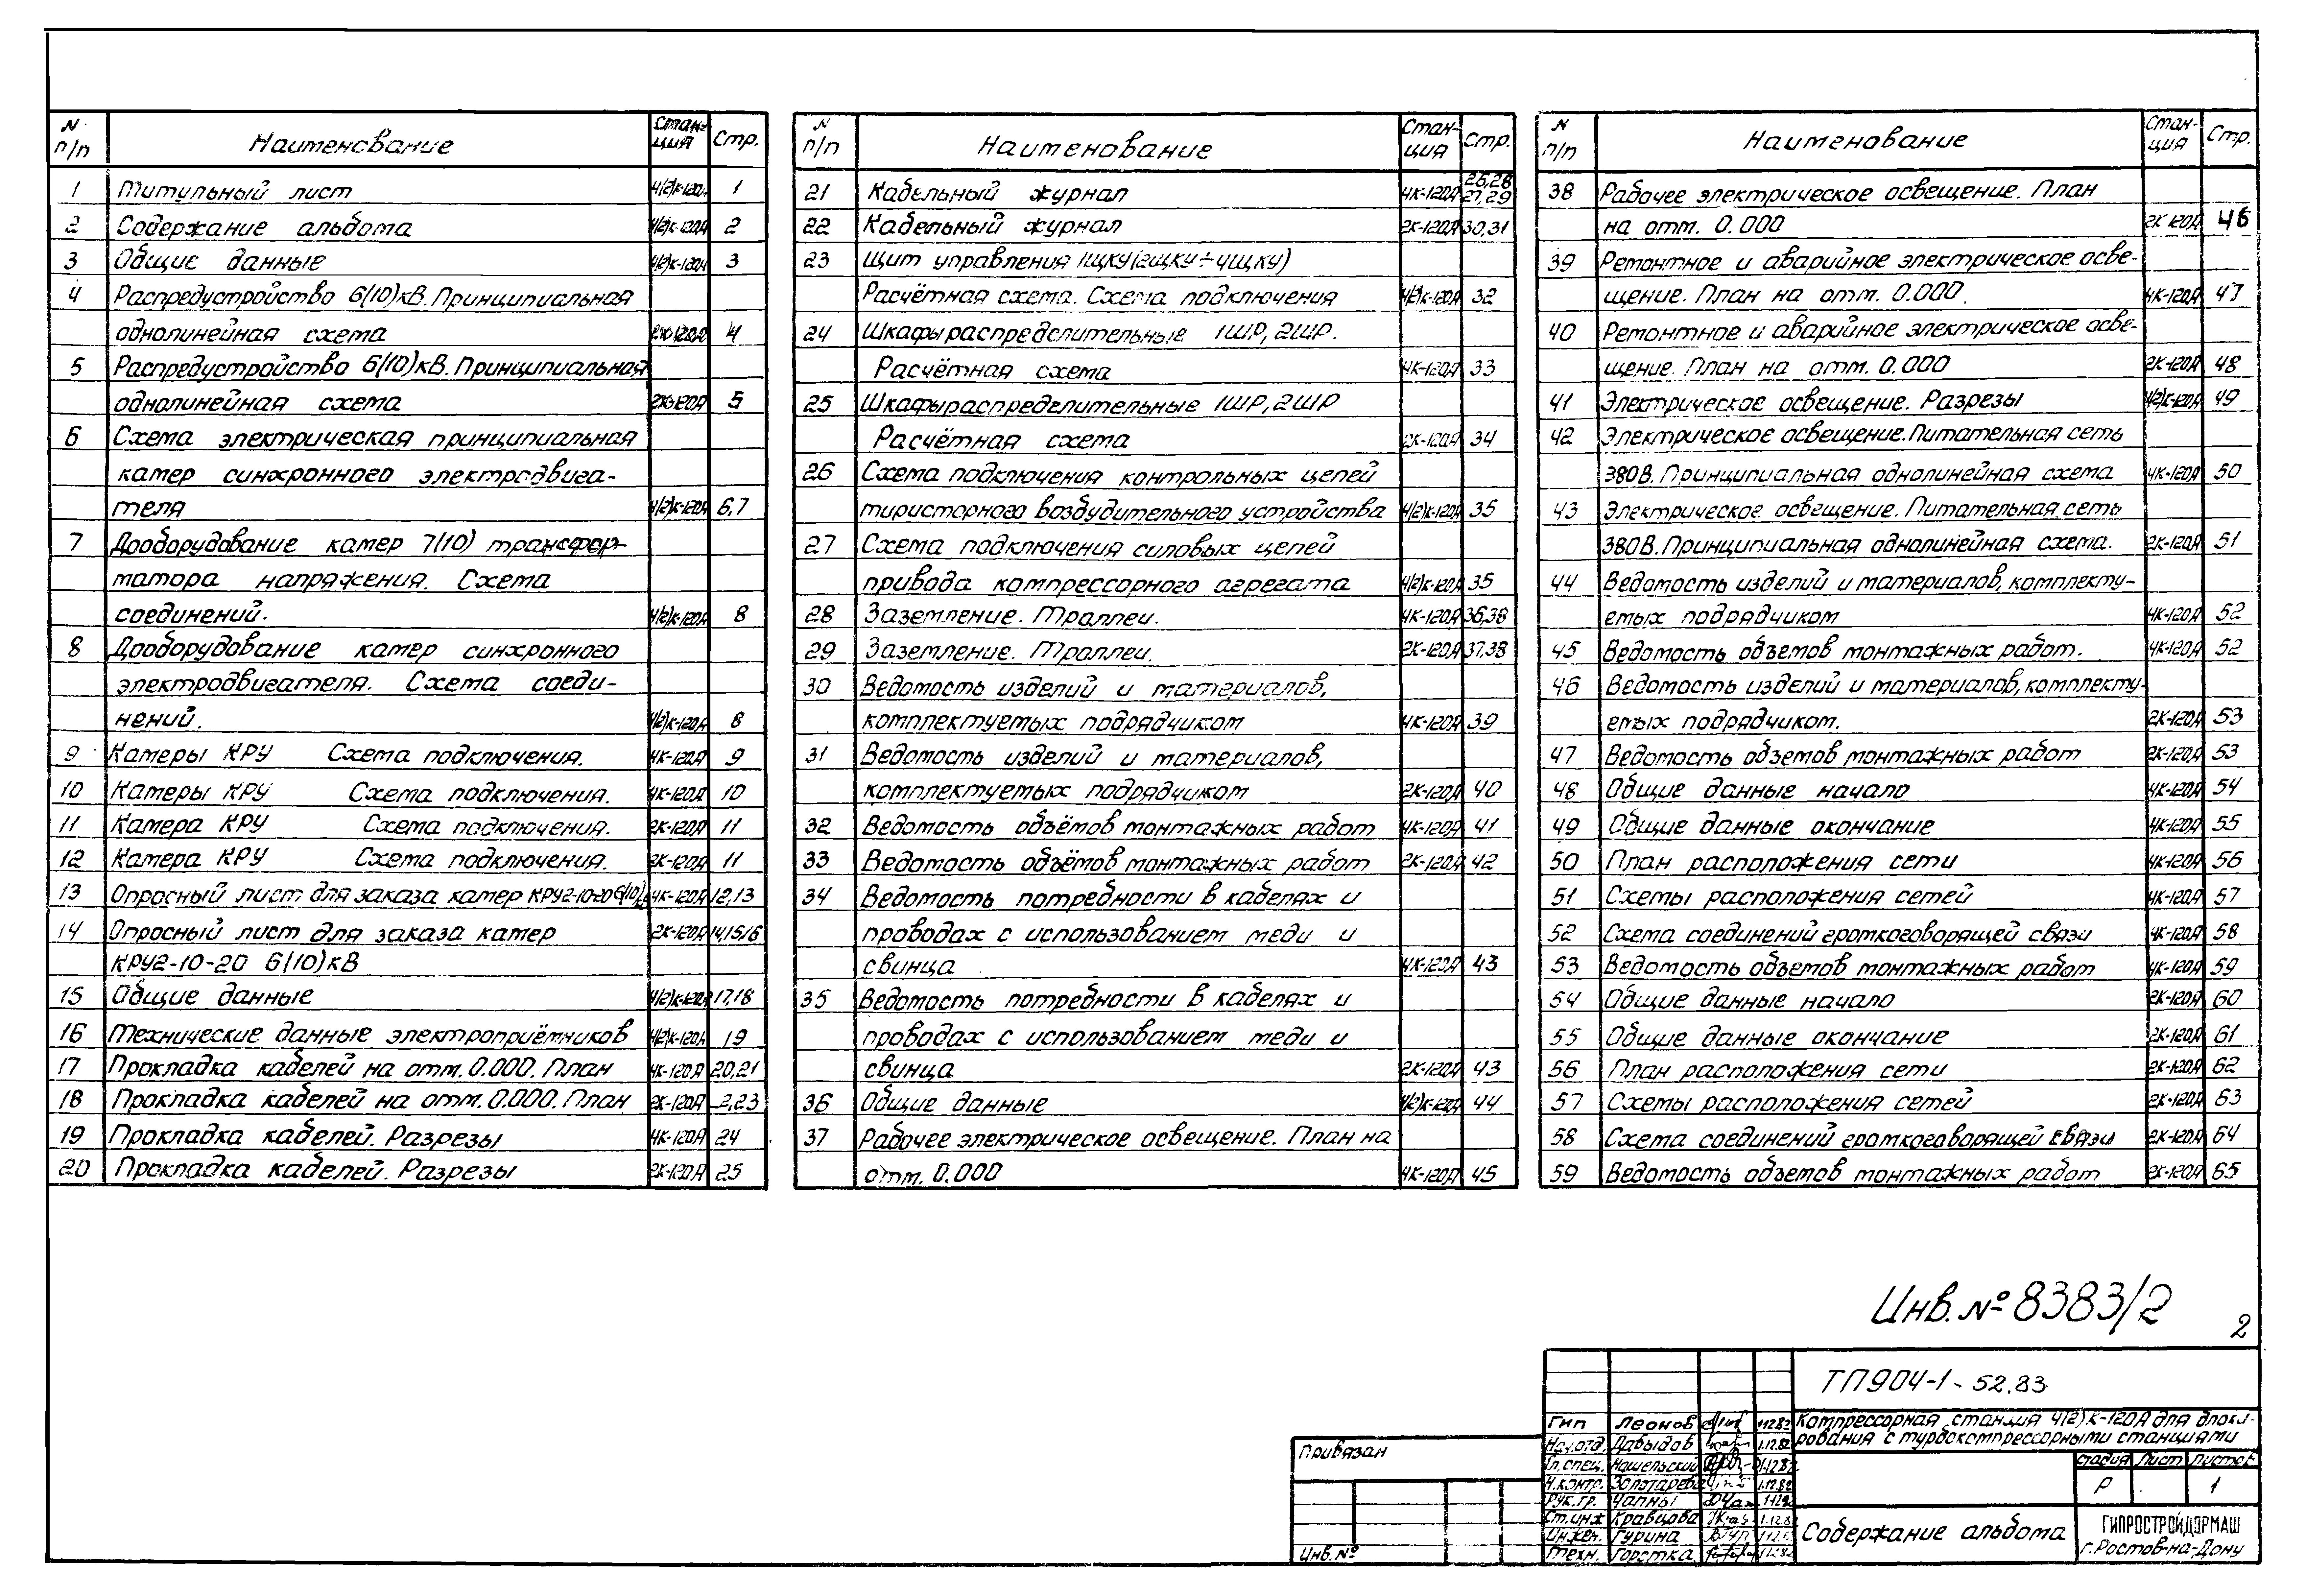 N п/п Наименование Стан-ция Стр.
1 Титульный лист 4(2)К-120А 1
2 Содержание альбома 4(2)К-120А 2
3 Общие данные 4(2)К-120А 3
4 Распредустройство 6(10)кВ. Принципиальная
однолинейная схема 4
5 Распредустройство 6(10)кВ. Принципиальная
однолинейная схема 2К-120А 5
6 Схема электрическая принципиальная
камер синхронного электродвига-
теля 4(2)К-120А 6,7
7 Дооборудование камер 7(10) трансфор-
матора напряжения. Схема
соединений. 4(2)К-120А 8
8 Дооборудование камер синхронного
электродвигателя. Схема соеди-
нений. 4(2)К-120А 8
9 Камеры КРУ Схема подключения. 4К-120А 9
10 Камеры КРУ Схема подключения. 4К-120А 10
11 Камера КРУ Схема подключения. 2К-120А 11
12 Камера КРУ Схема подключения. 2К-120А 11
13 Опросный лист для заказа камер КРУ2-10-20 6(10)кВ 4К-120А 12,13
14 Опросный лист для заказа камер 2К-120А 14,15,16
КРУ2-10-20 6(10)кВ
15 Общие данные 4(2)К-120А 17,18
16 Технические данные электроприёмников 4(2)К-120А 19
17 Прокладка кабелей на отм. 0.000. План 4К-120А 20,21
18 Прокладка кабелей на отм. 0.000. План 2К-120А 2,23
19 Прокладка кабелей. Разрезы 4К-120А 24
20 Прокладка кабелей. Разрезы 2К-120А 25
N п/п Наименование Стан-ция Стр.
21 Кабельный журнал 4К-120А 26,28 27,29
22 Кабельный журнал 2К-120А 30,31
23 Щит управления 1ЩКУ(2ЩКУ÷4ЩКУ)
Расчётная схема. Схема подключения 4(2)К-120А 32
24 Шкафы распределительные 1ШР, 2ШР.
Расчётная схема 4К-120А 33
25 Шкафы распределительные 1ШР, 2ШР
Расчётная схема 2К-120А 34
26 Схема подключения контрольных цепей
тиристорного воздудительного устройства 4(2)К-120А 35
27 Схема подключения силовых цепей
привода компрессорного агрегата 4(2)К-120А 35
28 Заземление. Троллеи. 4К-120А 36,38
29 Заземление. Троллеи. 2К-120А 37,38
30 Ведомость изделий и материалов,
комплектуемых подрядчиком 4К-120А 39
31 Ведомость изделий и материалов,
комплектуемых подрядчиком 2К-120А 40
32 Ведомость объёмов монтажных работ 4К-120А 41
33 Ведомость объёмов монтажных работ 2К-120А 42
34 Ведомость потребности в кабелях и
проводах с использованием меди и
свинца 4К-120А 43
35 Ведомость потребности в кабелях и
проводах с использованием меди и
свинца 2К-120А 43
36 Общие данные 4(2)К-120А 44
37 Рабочее электрическое освещение. План на
отм. 0.000 4К-120А 45
N п/п Наименование Стан-ция Стр.
38 Рабочее электрическое освещение. План
на отм. 0.000 2К-120А 46
39 Ремонтное и аварийное электрическое осве-
щение. План на отм. 0.000. 4К-120А 47
40 Ремонтное и аварийное электрическое осве-
щение. План на отм. 0.000 2К-120А 48
41 Электрическое освещение. Разрезы 4(2)К-120А 49
42 Электрическое освещение. Питательная сеть
380В. Принципиальная однолинейная схема 4К-120А 50
43 Электрическое освещение. Питательная сеть
380В. Принципиальная однолинейная схема. 2К-120А 51
44 Ведомость изделий и материалов, комплекту-
емых подрядчиком 4К-120А 52
45 Ведомость объемов монтажных работ. 4К-120А 52
46 Ведомость изделий и материалов, комплекту-
емых подрядчиком. 2К-120А 53
47 Ведомость объемов монтажных работ 2К-120А 53
48 Общие данные начало 4К-120А 54
49 Общие данные окончание 4К-120А 55
50 План расположения сети 4К-120А 56
51 Схемы расположения сетей 4К-120А 57
52 Схема соединений громкоговорящей связи 4К-120А 58
53 Ведомость объемов монтажных работ 4К-120А 59
54 Общие данные начало 2К-120А 60
55 Общие данные окончание 2К-120А 61
56 План расположения сети 2К-120А 62
57 Схемы расположения сетей 2К-120А 63
58 Схема соединений громкоговорящей связи 2К-120А 64
59 Ведомость объемов монтажных работ 2К-120А 65
Инв. № 8383/2
2
ТП904-1-52.83
Компрессорная станция 4(2)К-120А для блоки-
рования с турбокомпрессорными станциями
Гип Леонов 1.12.82
Нач.отд. Давыдов 1.12.82
Гл.спец. Нашельский 1.12.82
Н.контр. Золотарева 1.12.82
Рук.гр. Чапны 1.12.82
Ст.инж Кравцова 1.12.82
Инжен. Гурина 1.12.82
Техн. Горстка 1.12.82
Стадия Лист Листов
Р 1
Содержание альбома
ГИПРОСТРОЙДОРМАШ
г. Ростов-на-Дону
Привязан
Инв. №